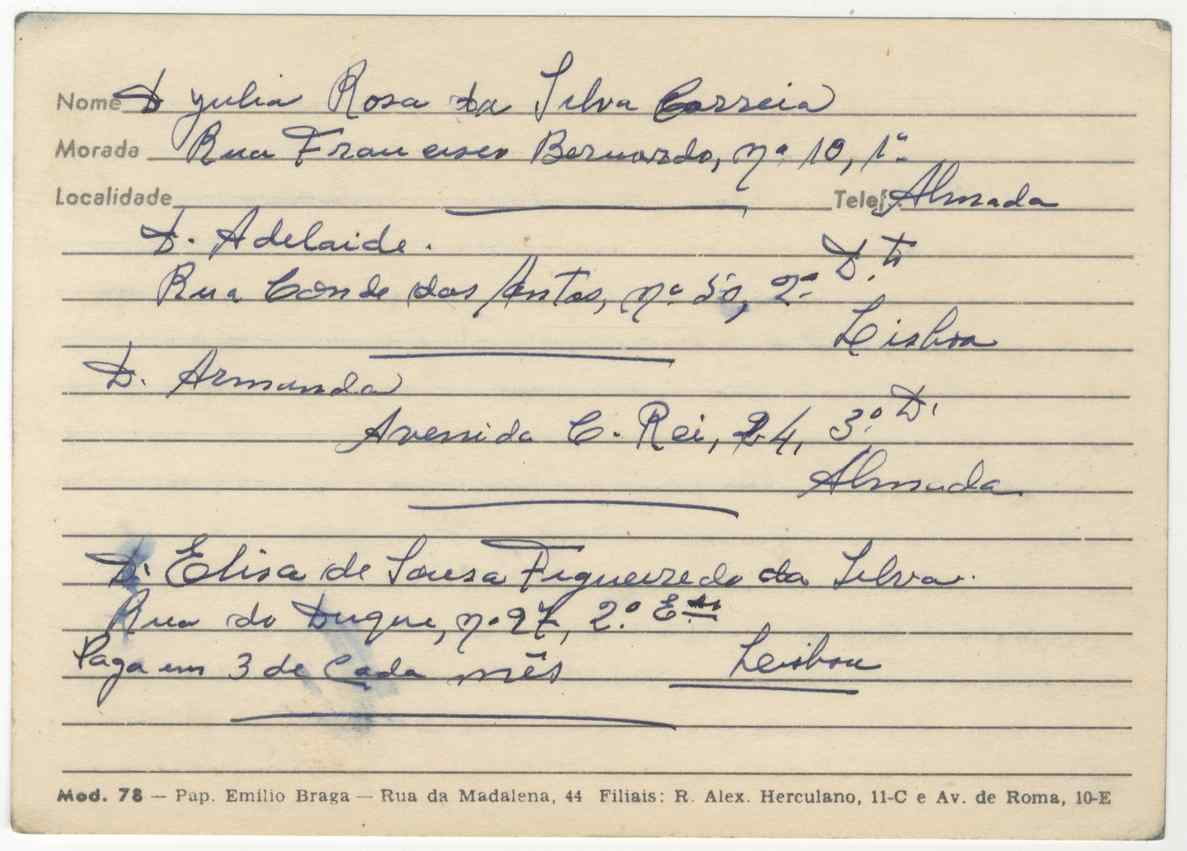 Nome D. Julia Rosa da Silva Correia
Morada Rua Francisco Bernardo, nº 10, 1º.
Localidade Telef. Almada
D. Adelaide.
Rua Conde dos Antos, nº 50, 2º D.to
Lisboa
D. Armanda
Avenida C. Rei, 24, 3º. D.
Almada
D. Elisa de Sousa Figueiredo da Silva.
Rua do Duque, nº 27, 2.º
Paga em 3 de Cada mês Lisboa
Mod. 78 — Pap. Emílio Braga — Rua da Madalena, 44 Filiais: R. Alex. Herculano, 11-C e Av. de Roma, 10-E